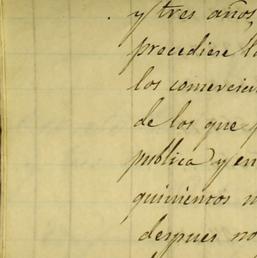 y tres años,
procediese
los comercia
de los que
publica) y en
quinientos
despues no